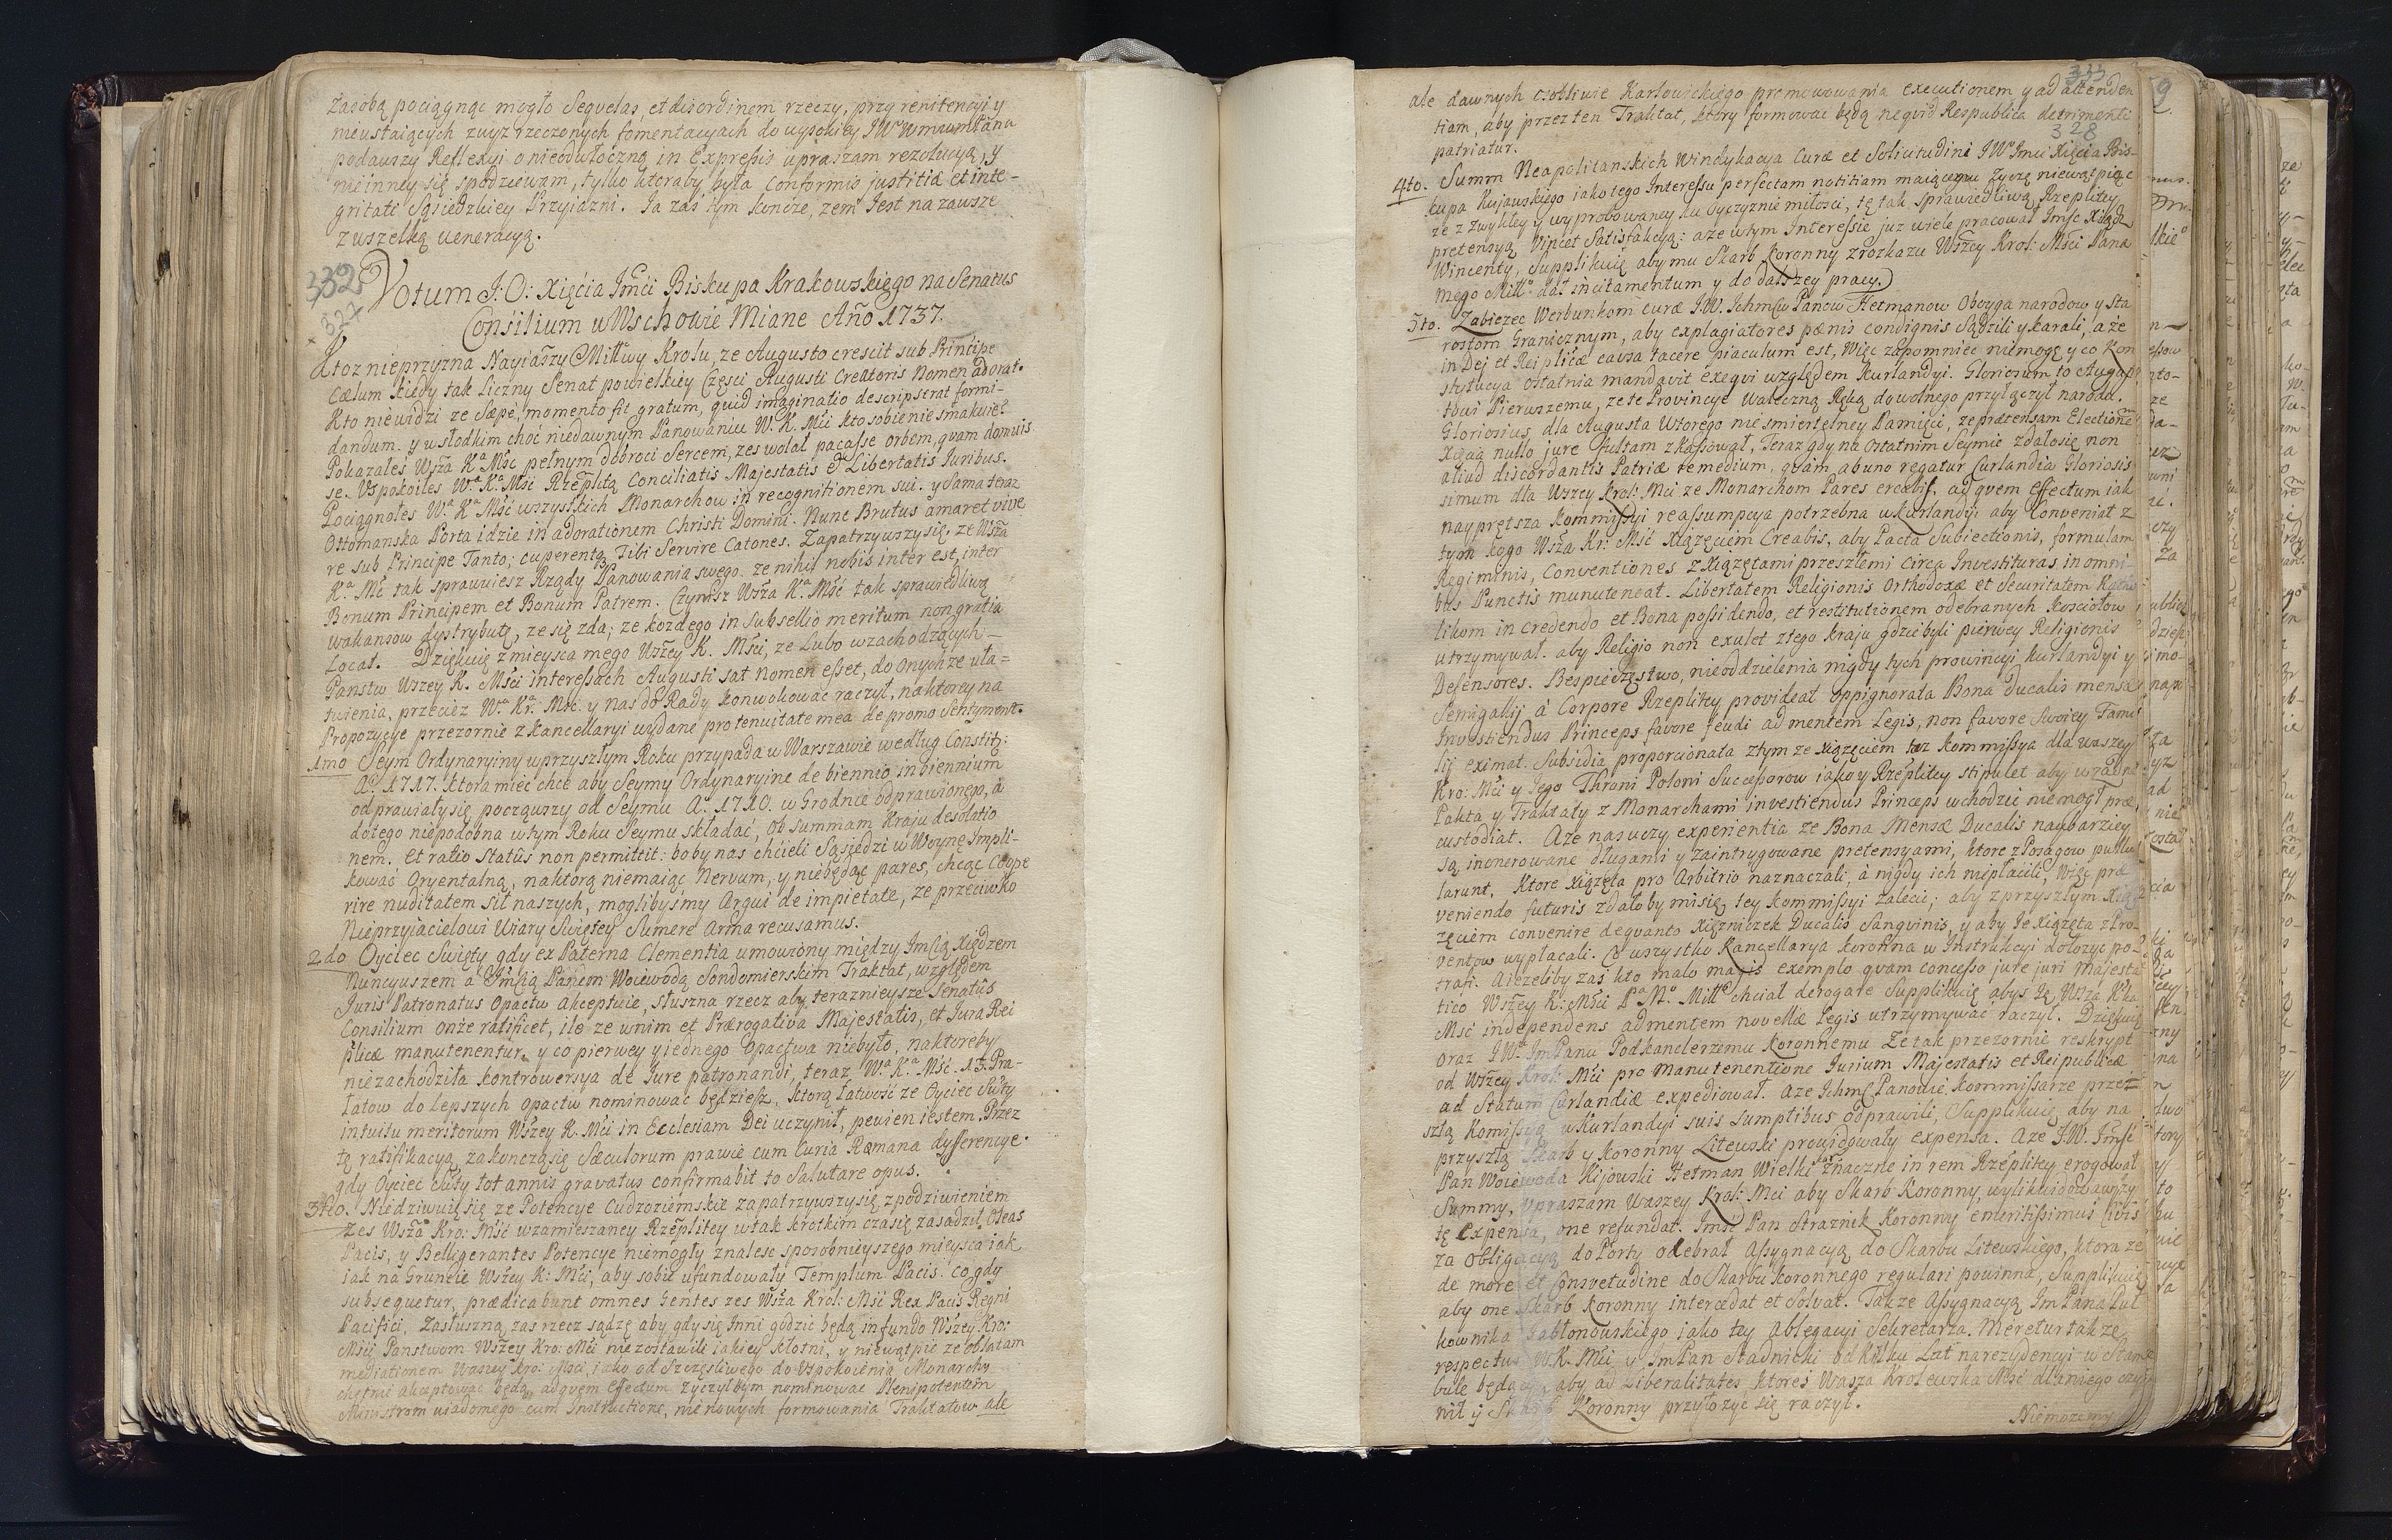 zasobą pociągnąc mogło Seqvelas, et disordinem rzeczy, przy renitencyi y
nieustaiących zwyż rzeczonych fomentacyach do wysokiey JW Wmmm Pana
podawszy Reflexyi o nieodwłoczną in Expressis upraszam rezolucyą, y
nieinney się spodziewam, tylko ktoraby była conformis justitiæ et inte-
gritati Sąsiedzkiey Przyiazni. Ja zaś tym konczę, zem Jest na zawsze
z wszelką weneracyą.
332
327
Votum J: O: Xięcia Jmći Biskupa Krakowskiego na Senatus
Consilium w Wschowie Miane Año 1737.
Ktoz nieprzyzna Nayiaszy Miłłwy Krolu, ze Augusto crescit sub Principe
Cælum kiedy tak liczny Senat powielkiey Częsci Augusti Creatoris Nomen adorat.
Kto niewidzi ze Sæpe, momento fit gratum, quid imaginatio descripserat formi-
dandum. y w słodkim choć niedawnym Panowaniu W. K. Mći kto sobie nie smakuie?
Pokazałes Wsza Kª Mśc pełnym dobroci Sercem, zes wolał pacasse orbem, qvam domuis
se. Uspokoiłes Wª Kª Mśći Rzeplitą Conciliatis Majestatis et Libertatis Juribus.
Pociągnołes Wª Kª Mść wszystkich Monarchow in recognitionem sui. y Sama teraz
Ottomanska Porta idzie in adorationem Christi Domini. Nunc Brutus amaret vive
re sub Principe Tanto; cuperentq3 Tibi Servire Catones. Zapatrzywszy się, ze Wsza
Kª Mć tak sprawuiesz Rządy Panowania swego. ze nihil nobis inter est, inter
Bonum Principem et Bonum Patrem. Czynisz Wsza Kª Mść tak sprawiedliwą
wakansow dystrybutę, ze się zda; ze kozdego in Subsellio meritum non gratia
Locat. Dziękuię z mieysca mego Wszey K. Mści, ze Lubo w zachodzących
Panstw Wszey K. Mści interessach Augusti sat nomen esset, do onych ze uła=
twienia, przecież Wª Kr. Mśc. y nas do Rady konwokować raczył, na ktorey na
Propozycye przezornie z Kancellaryi wydane pro tenuitate mea de promo Sentyment.
1mo Seym Ordynaryiny w przyszłym Roku przypada w Warszawie według Constit:
A: 1717. ktora mieć chce aby Seymy Ordynaryine de biennio in biennium
odprawiały się począwszy od Seymu A: 1710. w Grodnie odprawionego, a
do tego niepodobna w tym Roku Seymu składać, ob summam Kraju desolatio
nem. Et ratio Statûs non permittit: boby nas chcieli Sąsiedzi w Woynę Impli-
kować Oryentalną, na ktorą niemaiąc Nervum, y niebędąc pares, chcąc Coope
rire nuditatem sił naszych, moglibyśmy Argui de impietate, ze przeciwko
Nieprzyiacielowi Wiary Świętey Sumere Arma recusamus.
2do Oyciec Swięty gdy ex Paterna Clementia umowiony między Jmścią Xiędzem
Nuncyuszem a Jmścią Panem Woiewodą Sondomierskim Traktat, względem
Juris Patronatus Opactw akceptuie, słuszna rzecz aby terazniejsze Senatûs
Consilium onże ratificet, ile ze w nim et Prærogativa Majestatis, et Jura Rei
plicæ manutenentur, y co pierwey y jednego opactwa niebyło, na ktoreby
niezachodziła kontrowersya de Jure patronandi, teraz Wª Kª Mść. 13. Pra-
łatow do lepszych opactw nominować będziesz, ktorą łatwość ze Oyciec Swty
intuitu meritorum Wszey K. Mći in Ecclesiam Dei uczynił, pewien iestem. Przez
tę ratifikacyą zakonczą się Sæculorum prawie cum Curia Romana dyfferencye.
gdy Oyciec Swty tot annis gravatus confirmabit to Salutare opus.
3tio. Niedziwuię się ze Potencye Cudzoziemskie zapatrzywszy się z podziwieniem
Zes Wsza Kro: Mść w zamieszaney Rzeplitey w tak krotkim czasie zasadził Oleas
Pacis, y Belligerantes Potencye niemogły znalesc sposobnieyszego mieysca iak
iak na Gruncie Wszey K: Mći, aby sobie ufundowały Templum Pacis. Co, gdy
subsequetur, prædicabunt omnes Gentes zes Wsza Krol: Mść Rex Pacis Regni
Pacifici. Za słuszną zas rzecz sądzę aby gdy się Inni godzic będą in fundo Wszey Kro:
Mści Panstwom Wszey Kro: Mći nie zostawili iakiey kłotni, y niewątpię ze oblatam
mediationem Waszey Kro: Mści, iako od Szczęśliwego do Uspokoienia Monarchy
chętnie akceptować będą, ad qvem Effectum zyczyłbym nominować Plenipotentem
Ministrom wiadomego cum Instructione, nie nowych formowania Traktatow ale
333
328
ale dawnych osobliwie Karłowickiego promowowania executionem y ad attenden
tiam, aby przez ten Traktat, ktory formować będą neqvid Respublica detrimenti
patriatur.
4to. Summ Neapolitanskich windykacya Curæ et Solicitudini JW Jmći Xięcia Bis-
kupa Kujawskiego iako tego Interessu perfectam notitiam maiącemu zyczę niewątpiąc
ze z zwykłey y wyprobowaney ku Oyczyznie miłosci, tę tak sprawiedliwą Rzeplitey
pretensyą Vincet Satisfakcyą: a ze w tym Interessie juz wiele pracował Jmśc Xiądz
Wincenty, Supplikuię aby mu Skarb Koronny z rozkazu Wszey Krol: Mści Pana
mego Miłł: dał incitamentum y do dalszey pracy.
5to. Zabiezec Werbunkom curæ J.W. Ichmćw Panow Hetmanow Oboyga narodow y Sta
rostom Granicznym, aby explagiatores pænis condignis Sądzili y karali, a że
in Dei et Reiplicæ causa tacere piaculum est, Więc zapomniec niemogę y co kon
stytucya ostatnia mandavit exeqvi względem Kurlandyi. Gloriosum to Augus
towi Pierwszemu, ze te Prowincye waleczną Ręką do wolnego przyłączył narodu.
Gloriosius dla Augusta Wtorego niesmiertelney Pamięci, ze prætensam Electione
Xiążą nullo jure fultam zkassował, Teraz gdy na ostatnim Seymie zdało się non
aliud discordantis Patriæ remedium, quàm ab uno regatur Curlandia Gloriosis
simum dla Wszey Krol: Mći ze Monarchom Pares creabis, ad qvem effectum iak
nayprętsza Kommissyi reassumpcya potrzebna w Kurlandyi aby Conveniat z
tym kogo Wsza Kr: Mść Xiążęciem Creabis, aby Pacta Subiectionis, formulam
Regiminis, Conventiones z Xiążętami przeszłemi circa Investituras in omni-
bus Punctis manuteneat. Libertatem Religionis Orthodoxæ et Securitatem Katho
likom in credendo et Bona possidendo, et restitutionem odebranych Kosciołow
utrzymywał. aby Religio non exulet z tego kraju gdzie byli pierwey Religionis
Defensores. Bespieczęstwo, nieoddzielenia nigdy tych prowincyi Kurlandyi y
Semigallij à Corpore Rzeplitey provideat oppignorata Bona Ducalis mensæ
Investiendus Princeps favore feudi ad mentem Legis, non favore Swoiey Fami
lij eximat. Subsidia proporcionata z tym ze Xiążęciem taz Kommissya dla Waszey
Kro: Mći y Jego Throni Poloni Successorow iako y Rzeplitey stipulet aby w zadne
Pakta y Traktaty z Monarchami investiendus Princeps wchodzic niemogł præ
custodiat. A ze nas uczy experientia ze Bona Mensæ Ducalis naybarziey
są inonerowane długami y zaintrygowane pretensyami, ktore z Posagow pullu
larunt. Ktore Xiążęta pro Arbitrio naznaczali, a nigdy ich niepłacili, Więc præ
veniendo futuris zdałoby mi się tey Kommissyi zalecic; aby z przyszłym Xią
zęciem convenire deqvanto Xięzniczek Ducalis Sangvinis, y aby te Xiążęta z Pro-
ventow wypłacali. Co wszystko Kancellarya Koronna w Instrukcyi dołozyc po-
trafi. A iezeliby zas kto malo magis exemplo qvam concesso jure juri Majesta
tico Wszey K: Mści Pª Mº Miłłº chciał derogare Supplikuię abyś tę Wsza K'ka
Mść independens ad mentem novellæ legis utrzymywać raczył. Dziękuię
oraz JWu JmPanu Podkanclerzemu Koronnemu ze tak przezornie reskrypt
od Wszey Krol: Mći pro manutenentione Jurium Majestatis et Reipublicæ
ad Statum Curlandiæ expediował. A ze Ichmść Panowie Kommissarze prze-
szłą Komissyą w Kurlandyi suis sumptibus odprawili, Supplikuię aby na
przyszłą Skarb y Koronny Litewski prowidowały expensa. A ze J.W. Jmść
Pan Woiewoda Kijowski Hetman Wielki znaczne in rem Rzeplitey erogował
Summy, upraszam Waszey Krol: Mci aby Skarb Koronny, wylikwidowawszy
tę expensa, one refundat. Jmść Pan Straznik Koronny emeritissimus Civis
za obligacyą do Porty odebrał Assygnacyą do Skarbu Litewskiego, ktora ze
de more et consvetudine do Skarbu Koronnego regulari powinna, Supplikuię
aby one Skarb Koronny intercedat et Solvat. Takze Assygnacyą JmPana Puł
kownika Jabłonowskiego iako tey Ablegacyi Sekretarza. Meretur także
respectu W.K. Mći y JmPan Stadnicki od kilku Lat na rezydencyi w Stam
bule będący, aby ad Liberalitates ktores Wasza Krolewska Mść dla niego uczy
nił y Skarb Koronny przyłozyc się raczył.
Niemozemy